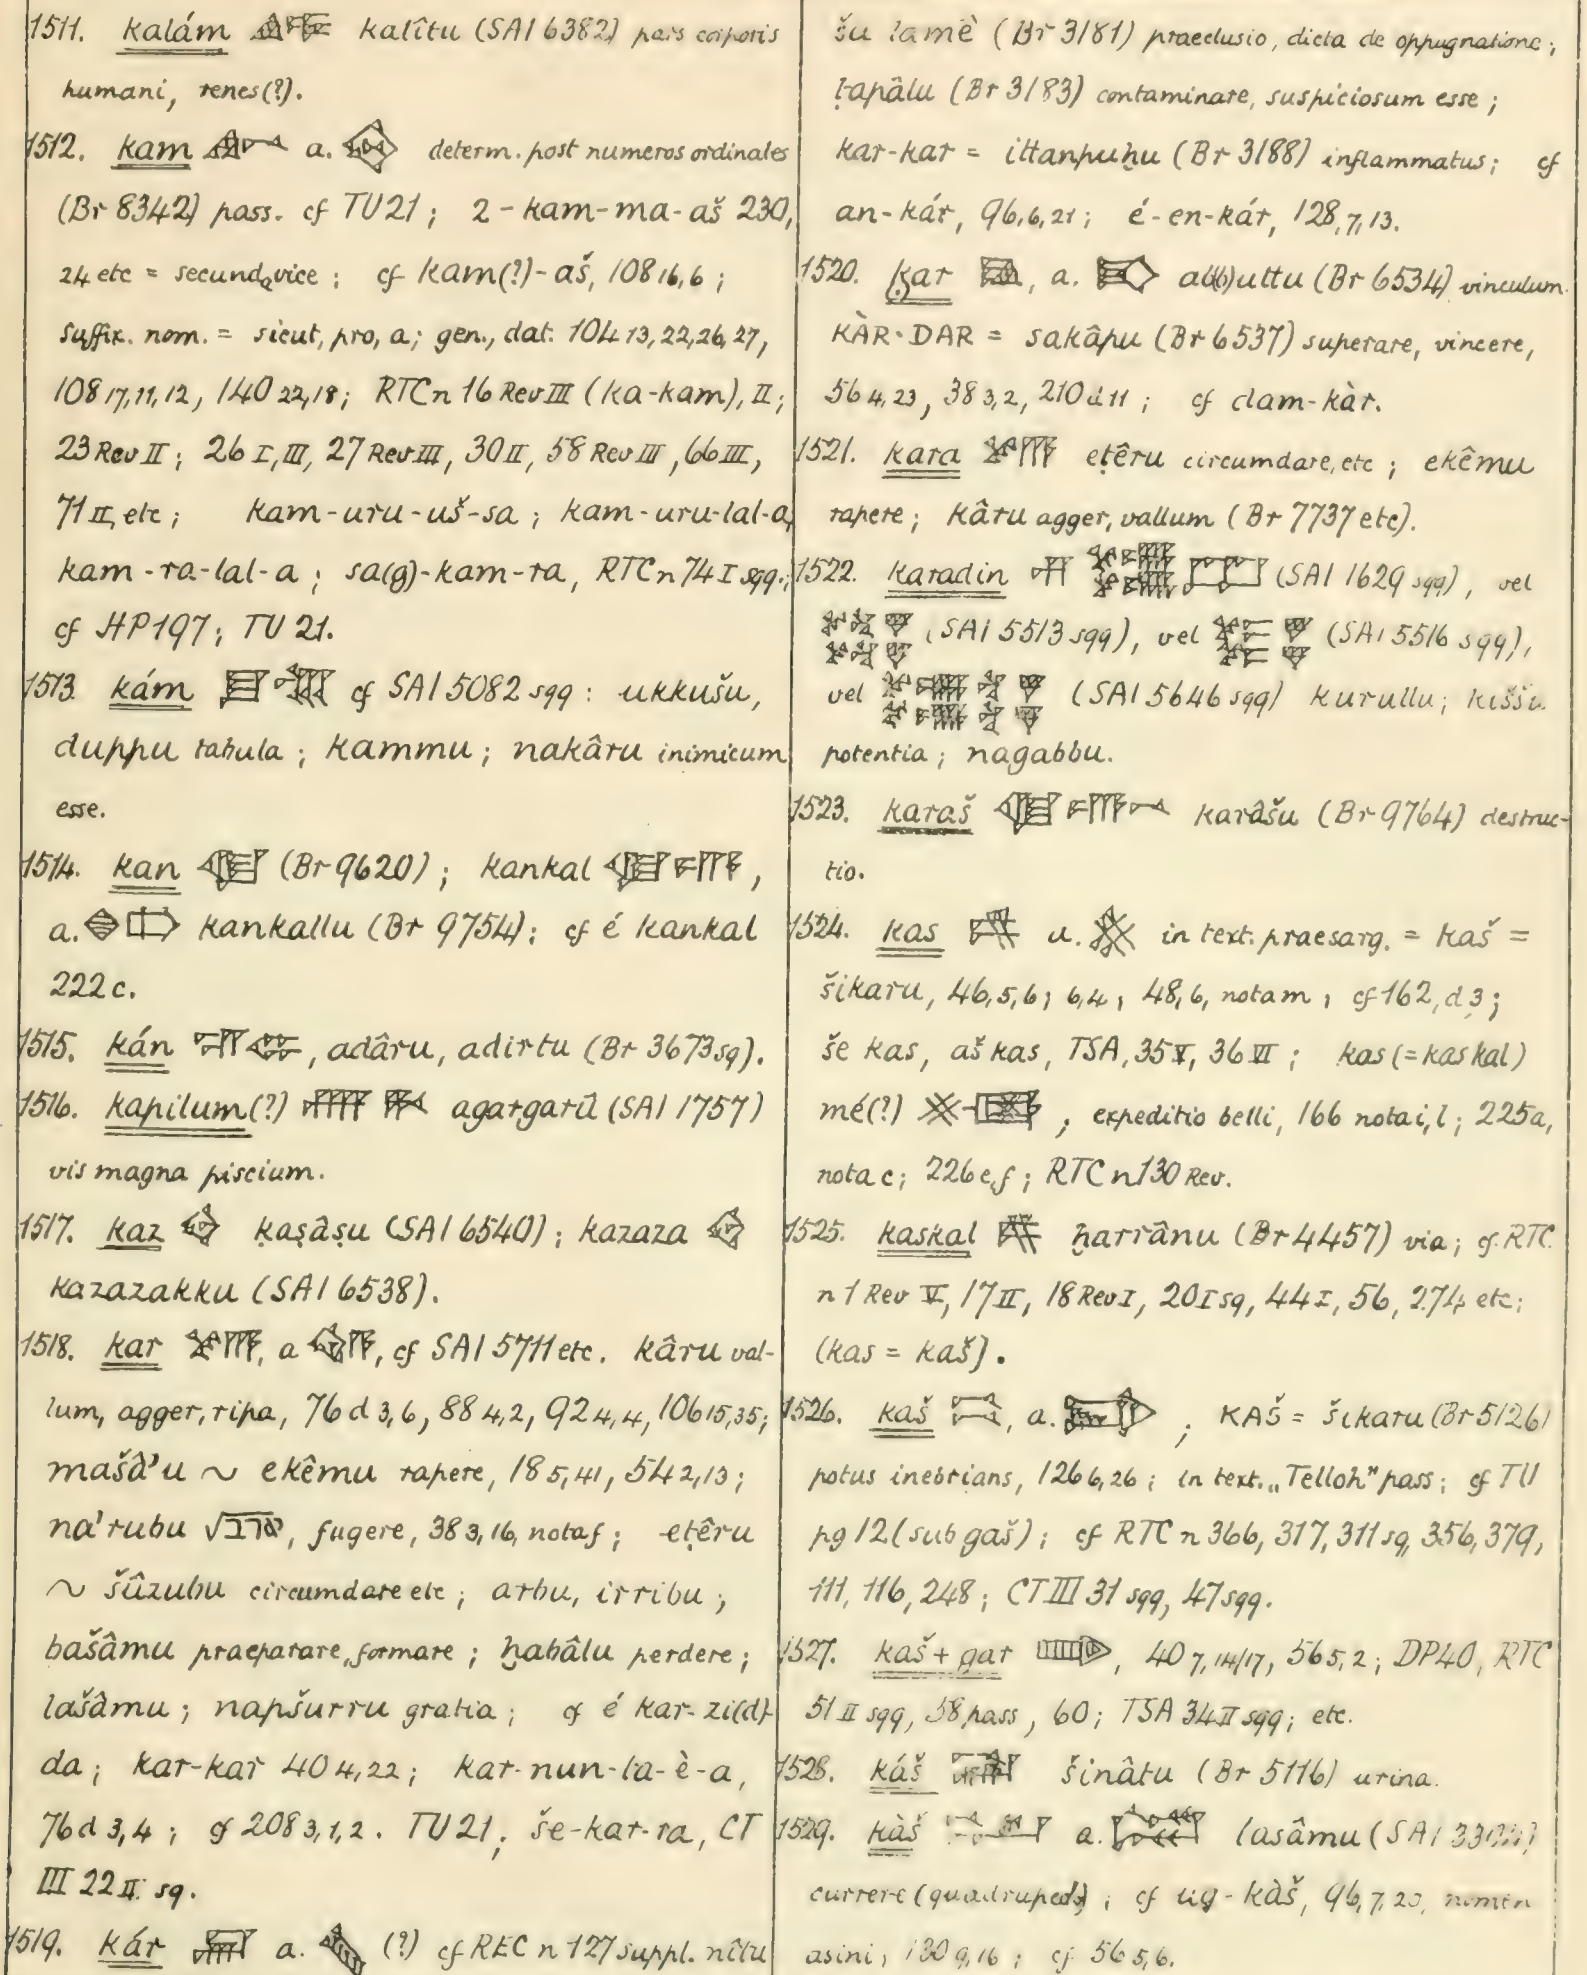 1511. kalám kalîtu (SAI 6382) pars corporis
humani, renes(?).
1512. kam a. determ. post numeros ordinales
(Br 8342) pass. cf TU 21; 2-kam-ma-aš 230,
24 etc = secunda vice; cf kam(?)-aš, 108 16,6;
suffix. nom. = sicut, pro, a; gen., dat. 104 13,22,26,27,
108 17,11,12, 140 22,18; RTC n 16 Rev III (ka-kam), II;
23 Rev II; 26 I, III, 27 Rev III, 30 II, 58 Rev III, 66 III,
71 II, etc; kam-uru-uš-sa; kam-uru-lal-a,
kam-ra-lal-a; sa(g)-kam-ra, RTC n 74 I sqq.;
cf HP 197; TU 21.
1513. kám cf SAI 5082 sqq: ukkušu,
duppu tabula; kammu; nakâru inimicum
esse.
1514. kan (Br 9620); kankal,
a. kankallu (Br 9754); cf é kankal
222 c.
1515. kán, adâru, adirtu (Br 3673 sq).
1516. kapilum(?) agargarû (SAI 1757)
vis magna piscium.
1517. kaz ḳaṣâṣu (SAI 6540); kazaza
kazazakku (SAI 6538).
1518. kar, a, cf SAI 5711 etc. kâru val-
lum, agger, ripa, 76 d 3,6, 88 4,2, 92 4,4, 106 15,35;
mašâ'u ~ ekêmu rapere, 18 5,41, 54 2,13;
na'rubu √, fugere, 38 3,16, nota f; eṭêru
~ šûzubu circumdare etc; arbu, irribu;
bašâmu praeparare, formare; ḫabâlu perdere;
lašâmu; napšurru gratia; cf é kar-zi(d)-
da; kar-kar 40 4,22; kar-nun-ta-è-a,
76 d 3,4; cf 208 3,1,2. TU 21; še-kar-ra, CT
III 22 II sq.
1519. kár a. (?) cf REC n 127 suppl. nîtu
šu lamê (Br 3181) praeclusio, dicta de oppugnatione;
ṭapâlu (Br 3183) contaminare, suspiciosum esse;
kar-kar = ittanpuḫu (Br 3188) inflammatus; cf
an-kár, 96,6,21; é-en-kár, 128,7,13.
1520. ḳar, a. ab(b)uttu (Br 6534) vinculum.
KÀR-DAR = sakâpu (Br 6537) superare, vincere,
56 4,23, 38 3,2, 210 d 11; cf dam-kàr.
1521. kara eṭêru circumdare, etc; ekêmu
rapere; kâru agger, vallum (Br 7737 etc).
1522. karadin (SAI 1629 sqq), vel
(SAI 5513 sqq), vel (SAI 5516 sqq),
vel (SAI 5646 sqq) kurullu; kiššu
potentia; nagabbu.
1523. karaš karâšu (Br 9764) destruc-
tio.
1524. kas a. in text. praesarg. = kaš =
šikaru, 46,5,6; 6,4; 48,6, notam; cf 162, d 3;
še kas, aš kas, TSA, 35 V, 36 VI; kas (=kaskal)
mé(?), expeditio belli, 166 nota i, l; 225 a,
nota c; 226 e,f; RTC n 130 Rev.
1525. kaskal ḫarrânu (Br 4457) via; cf RTC
n 1 Rev V, 17 II, 18 Rev I, 20 I sq, 44 I, 56, 274 etc;
(kas = kaš).
1526. kaš, a. ; KAŠ = šikaru (Br 5126)
potus inebrians, 126 6,26; in text. „Telloh" pass; cf TU
pg 12 (sub gaš); cf RTC n 366, 317, 311 sq, 356, 379,
111, 116, 248; CT III 31 sqq, 47 sqq.
1527. kaš+gar, 40 7,14/17, 56 5,2; DP 40, RTC
51 II sqq, 58 pass, 60; TSA 34 II sqq; etc.
1528. káš šinâtu (Br 5116) urina.
1529. kàš a. lasâmu (SAI
currere (quadrupeds); cf ug-kàš, 96,7,20, nomen
asini, 130 9,16; cf 56 5,6.